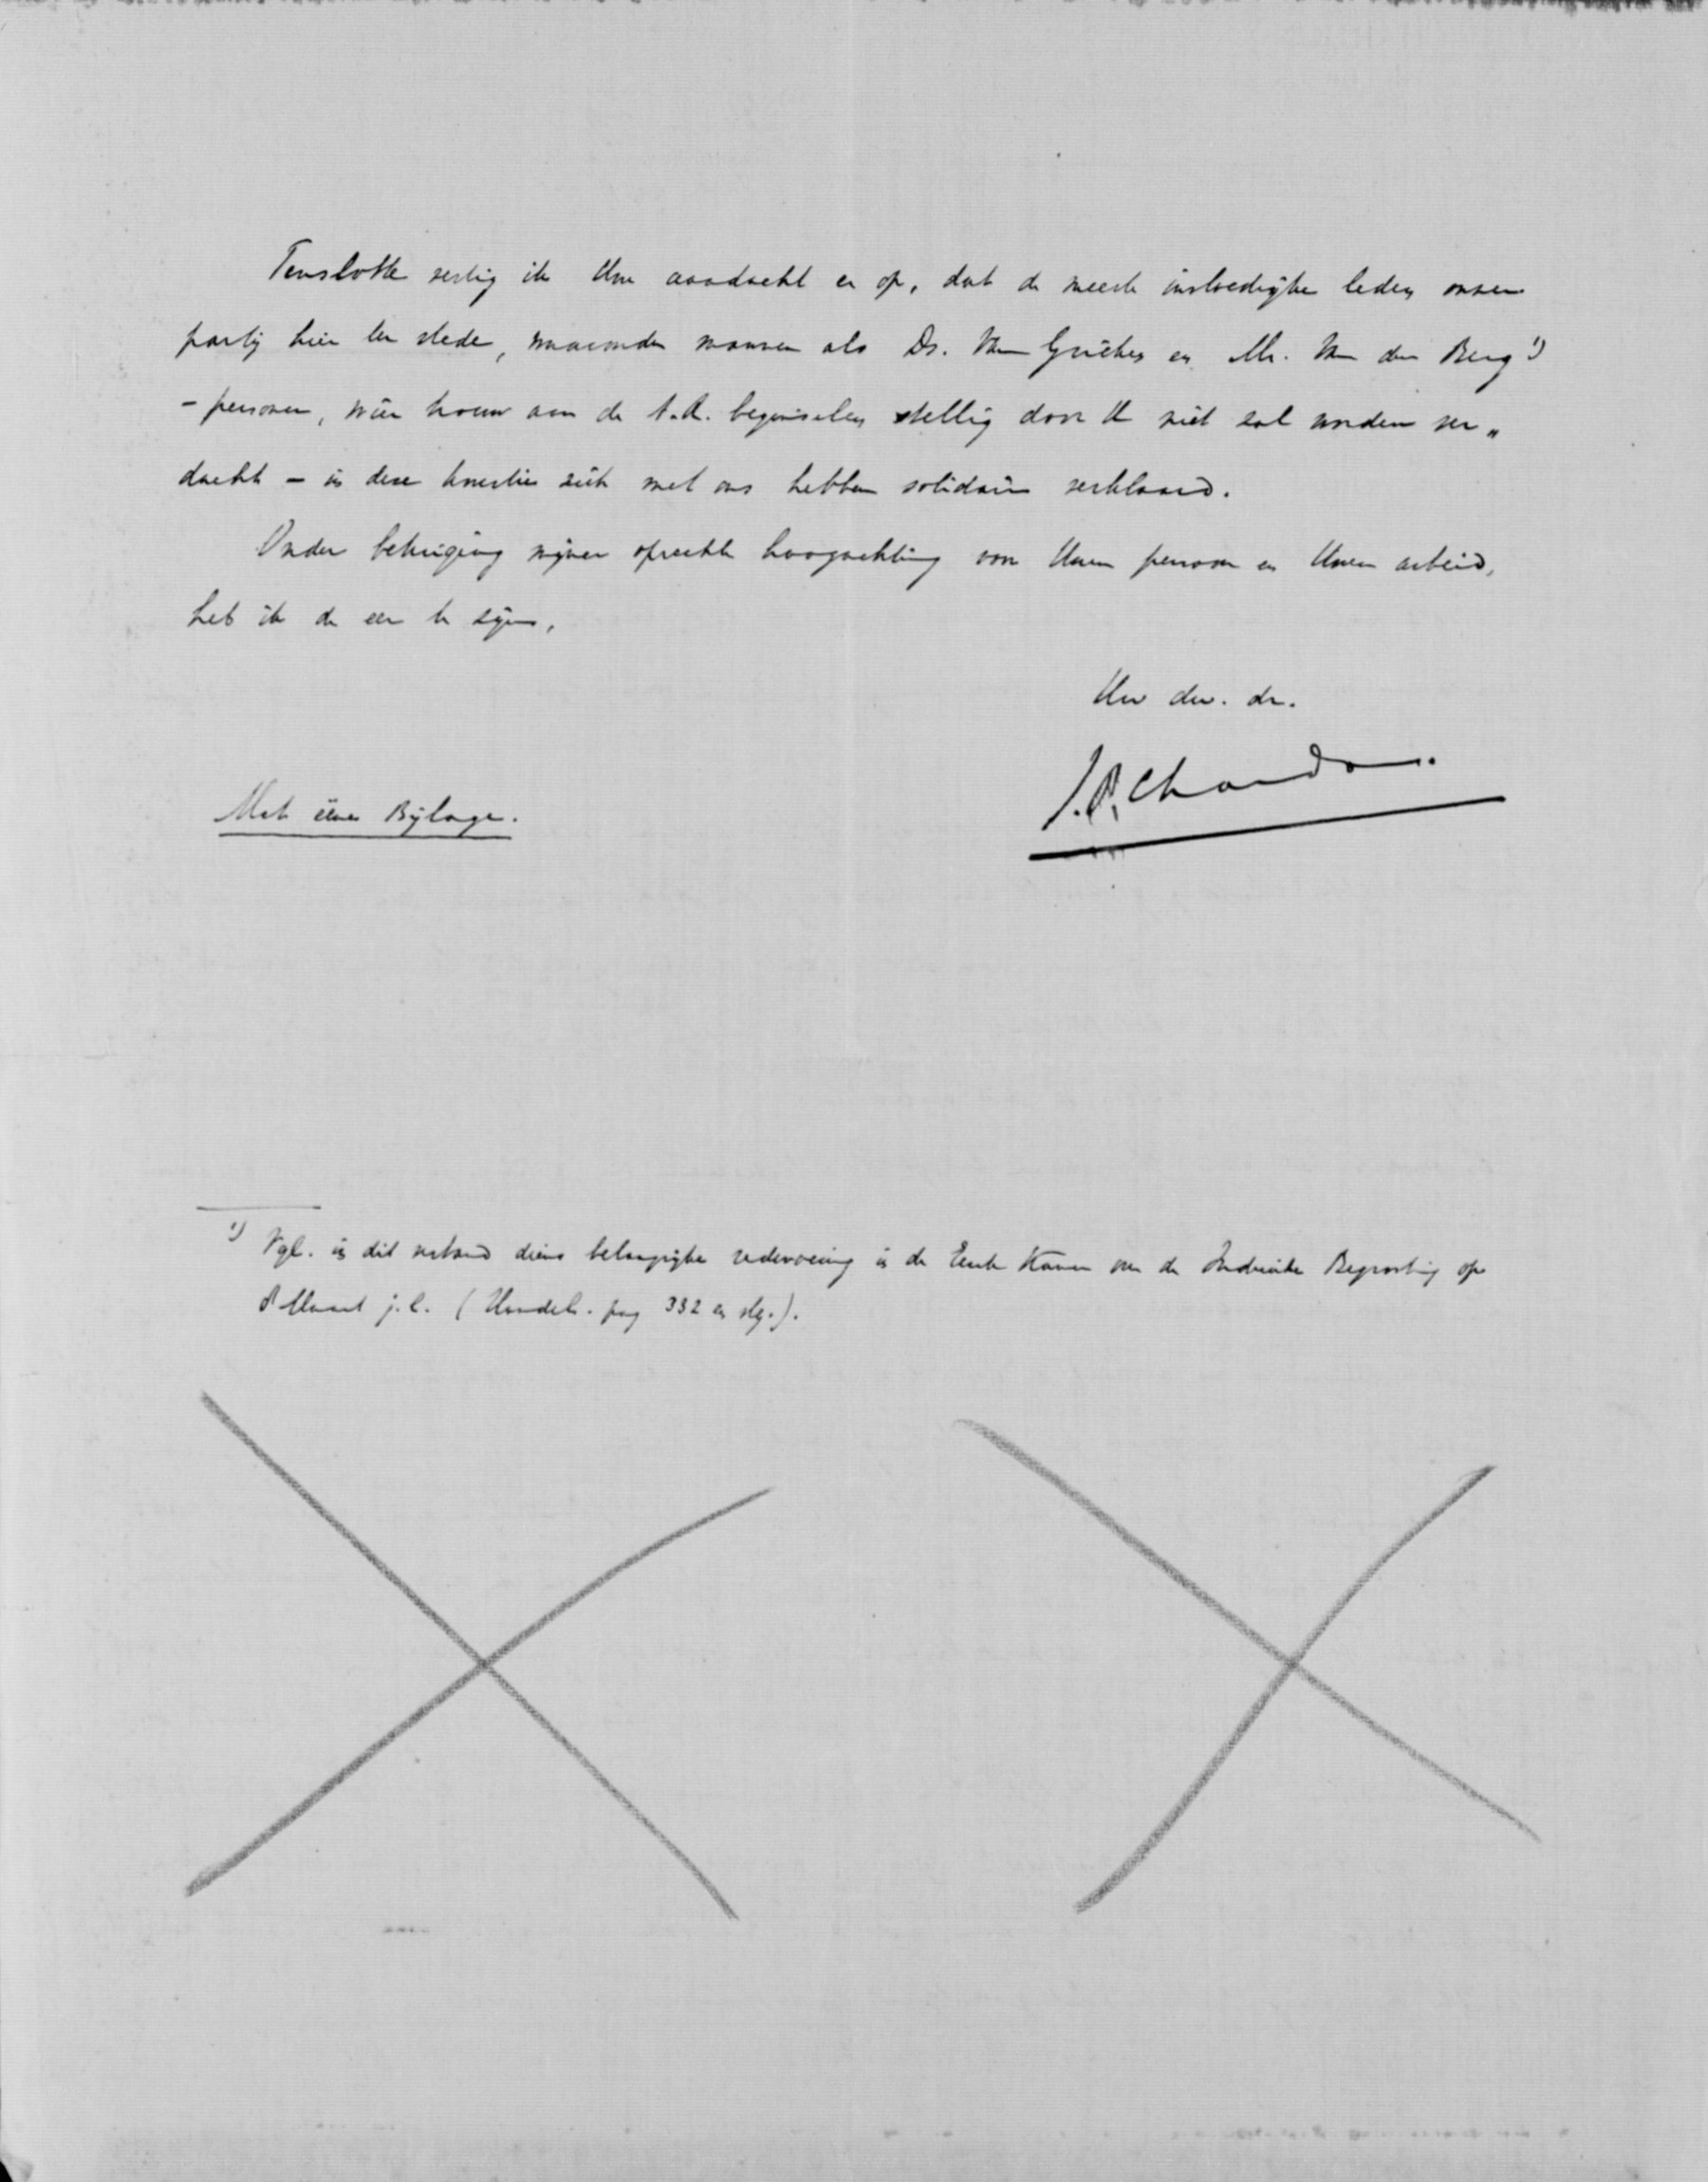 Tenslotte vestig ik Uw aandacht er op, dat de meest invloedrijke leden onzer
partij hier ter stede, waaronder mannen als Ds. Van en Mr. Van den Berg 1)
- personen, wier trouw aan de A.R. beginselen stellig door U niet zal worden ver„
dacht – in deze kwestie zich met ons hebben solidair verklaard.
Onder betuiging mijner oprechte hoogachting voor Uwen persoon en Uwen arbeid,
heb ik de eer te zijn,
Uw dw. dr.
Met éene Bijlage.
1) Vgl. in dit verband diens belangrijke redevoering in de Eerste Kamer over de Indische Begrooting op
Maart j.l. (Handel. pag 332 en vlg.).